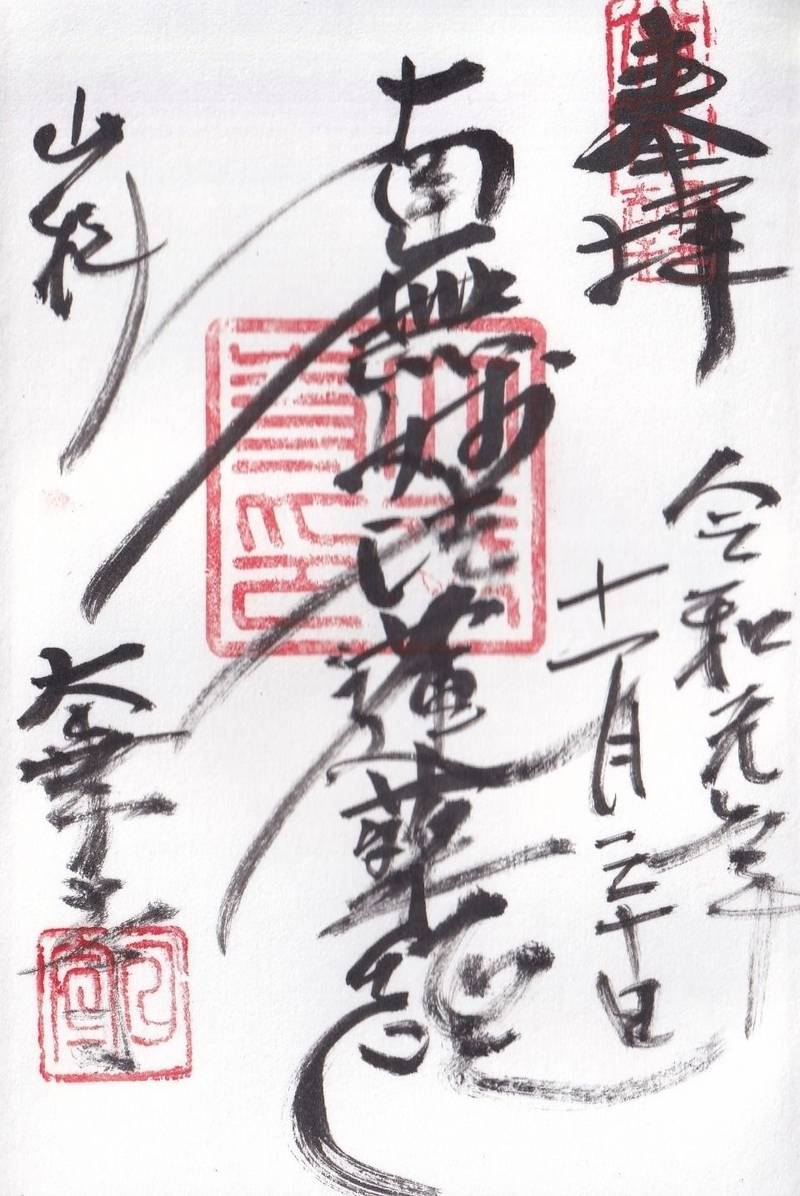 奉拝
令和元年
十一月三十日
南無妙法蓮華経
山科
大華寺